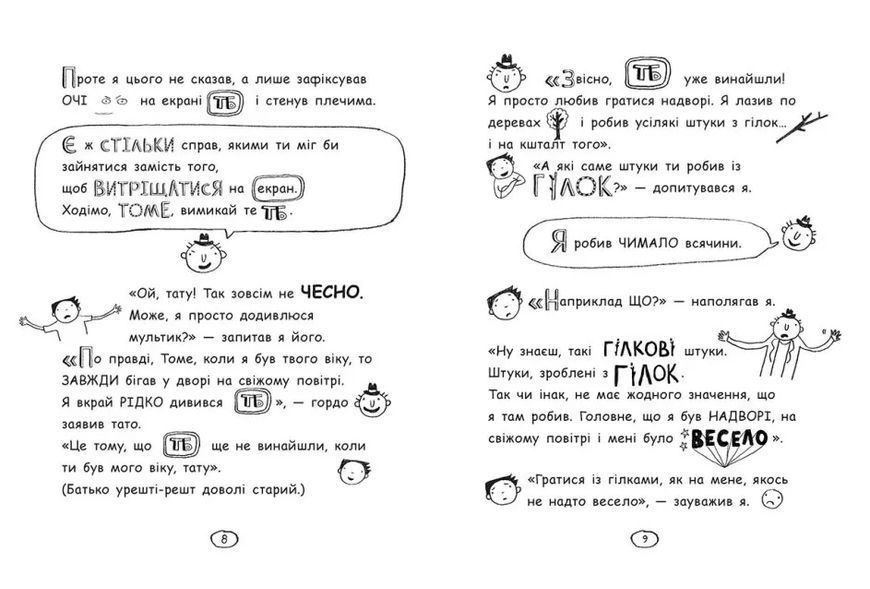 Проте я цього не сказав, а лише зафіксував
ОЧІ на екрані ТБ і стенув плечима.
Є ж СТІЛЬКИ справ, якими ти міг би
зайнятися замість того,
щоб ВИТРІЩАТИСЯ на екран.
Ходімо, ТОМЕ, вимикай те ТБ.
«Ой, тату! Так зовсім не ЧЕСНО.
Може, я просто додивлюся
мультик?» — запитав я його.
«По правді, Томе, коли я був твого віку, то
ЗАВЖДИ бігав у дворі на свіжому повітрі.
Я вкрай РІДКО дивився ТБ», — гордо
заявив тато.
«Це тому, що ТБ ще не винайшли, коли
ти був мого віку, тату».
(Батько урешті-решт доволі старий.)
8
«Звісно, ТБ уже винайшли!
Я просто любив гратися надворі. Я лазив по
деревах і робив усілякі штуки з гілок...
і на кшталт того».
«А які саме штуки ти робив із
ГІЛОК?» — допитувався я.
Я робив ЧИМАЛО всячини.
«Наприклад ЩО?» — наполягав я.
«Ну знаєш, такі ГІЛКОВІ штуки.
Штуки, зроблені з ГІЛОК.
Так чи інак, не має жодного значення, що
я там робив. Головне, що я був НАДВОРІ, на
свіжому повітрі і мені було ВЕСЕЛО».
«Гратися із гілками, як на мене, якось
не надто весело», — зауважив я.
9